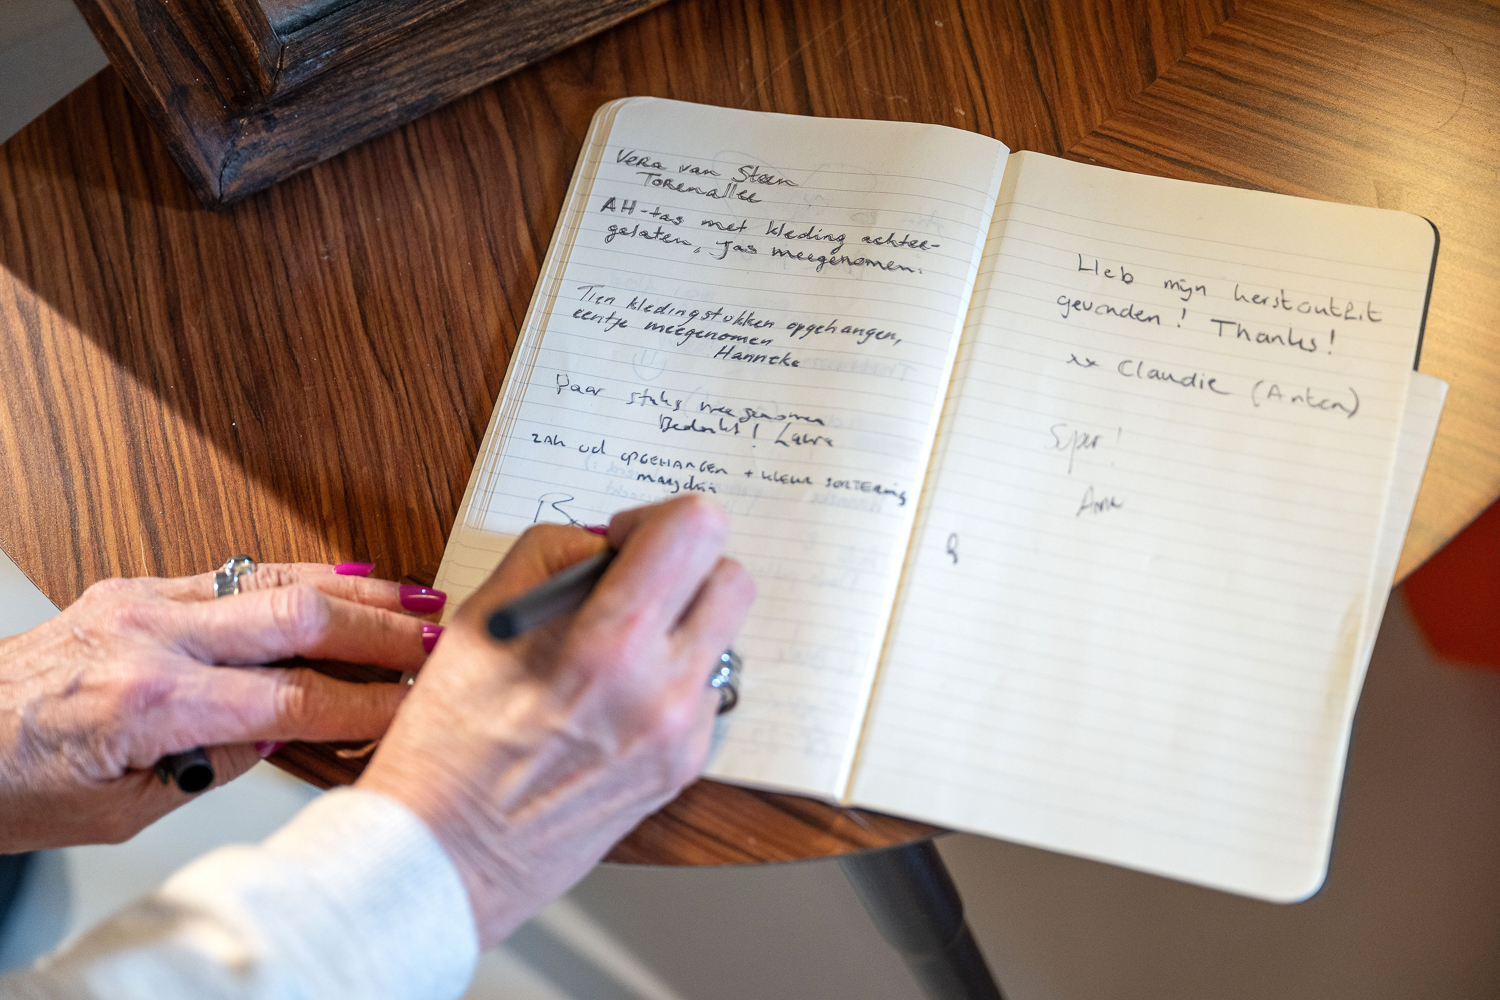 Vera van Steen
Torenallee
AH-tas met kleding achter-
gelaten, jas meegenomen.
Tien kledingstukken opgehangen,
eentje meegenomen
Hanneke
Paar stuks meegenomen
Bedankt! Laura
zak vol opgehangen + kleur sortering
Heb mijn kerstoutfit
gevonden! Thanks!
xx Claudie (Anten)
Super!